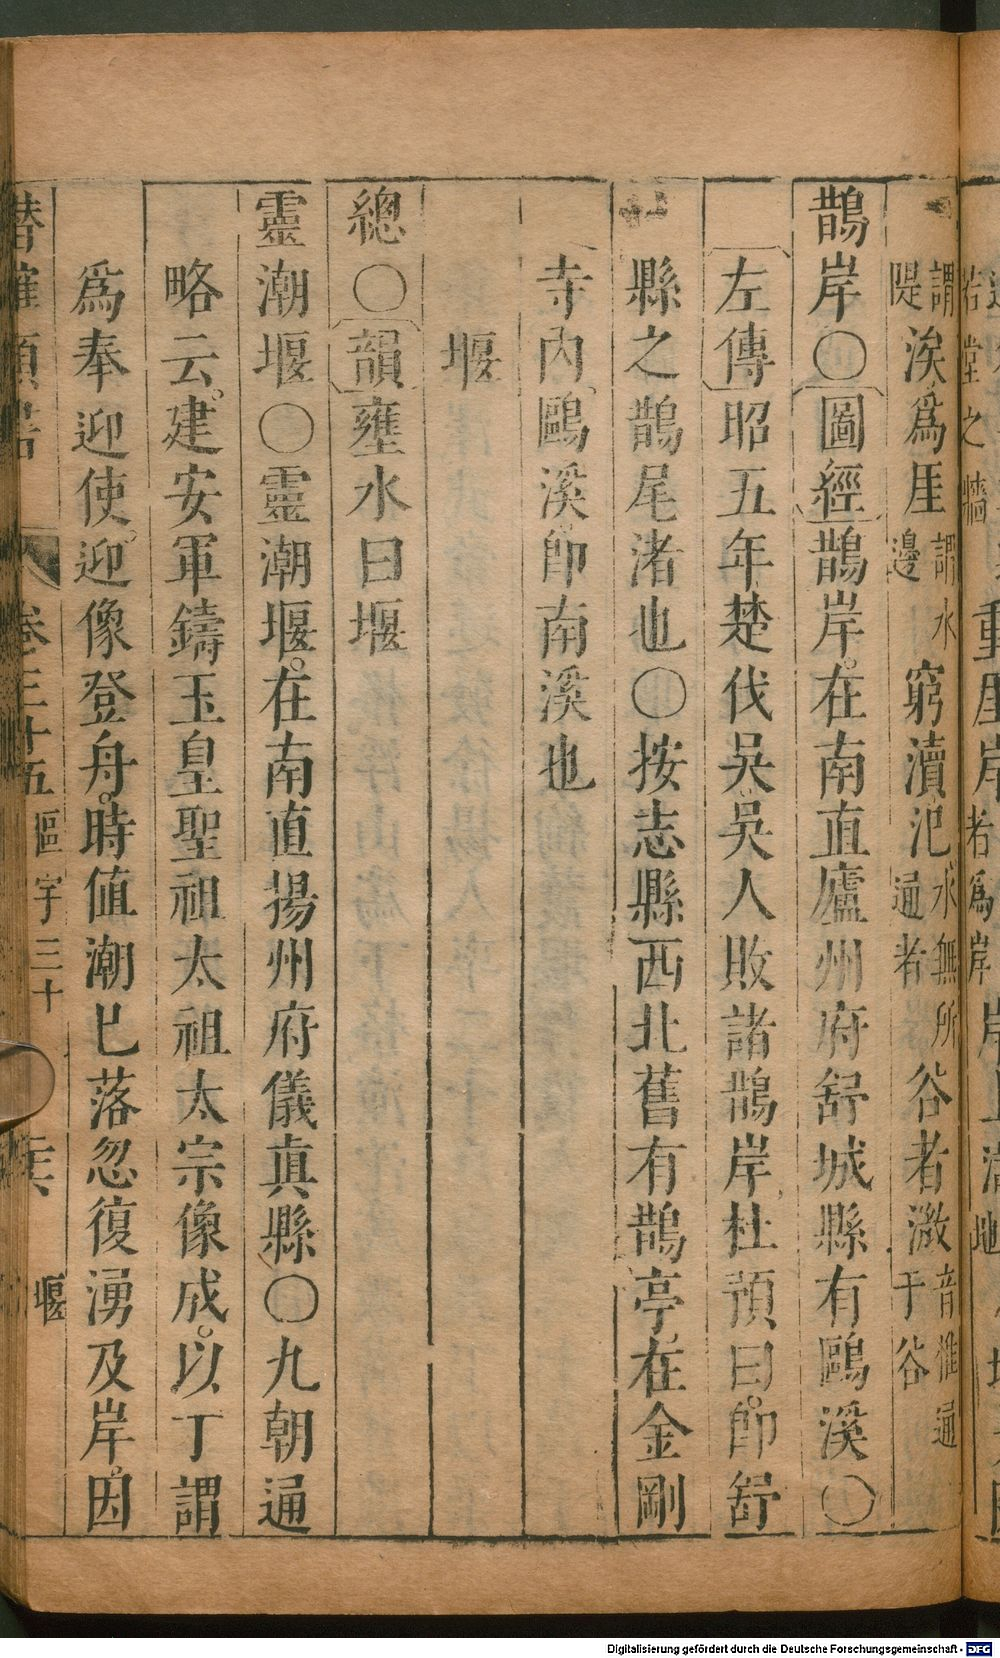 隄謂涘爲厓邊謂水窮瀆汜水無所通者谷者溦音惟通于谷
鵲岸○圖經鵲岸在南直廬州府舒城縣有鷗溪○
左傳昭五年楚伐吳吳人敗諸鵲岸杜預曰卽舒
縣之鵲尾渚也○按志縣西北舊有鵲亭在金剛
寺內鷗溪卽南溪也
堰
總○韻壅水曰堰
靈潮堰○靈潮堰在南直揚州府儀真縣○九朝通
略云建安軍鑄玉皇聖祖太祖太宗像成以丁謂
爲奉迎使迎像登舟時值潮已落忽復湧及岸因
潛確類書 卷三十五 區宇三十 堰
Digitalisierung gefördert durch die Deutsche Forschungsgemeinschaft - DFG